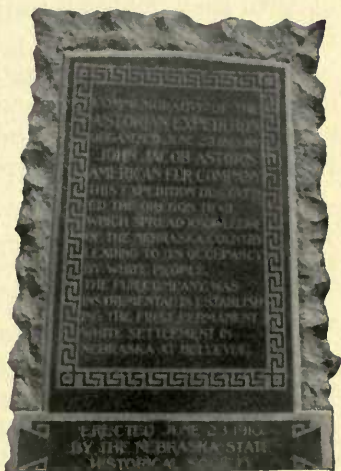 COMMEMORATIVE OF THE
ASTORIAN EXPEDITION
ORGANIZED JUNE 23
JOHN JACOB ASTOR
AMERICAN FUR COMPANY
THIS EXPEDITION DISCOVER
ED THE OREGON TRAIL
WHICH SPREAD KNOWLEDGE
OF THE NEBRASKA COUNTRY
LEADING TO ITS OCCUPANCY
BY WHITE PEOPLE
THE FUR COMPANY WAS
INSTRUMENTAL IN ESTABLISH
ING THE FIRST PERMANENT
WHITE SETTLEMENT IN
NEBRASKA AT BELLEVUE
ERECTED JUNE 23 1910
BY THE NEBRASKA STATE
HISTORICAL SOCIETY